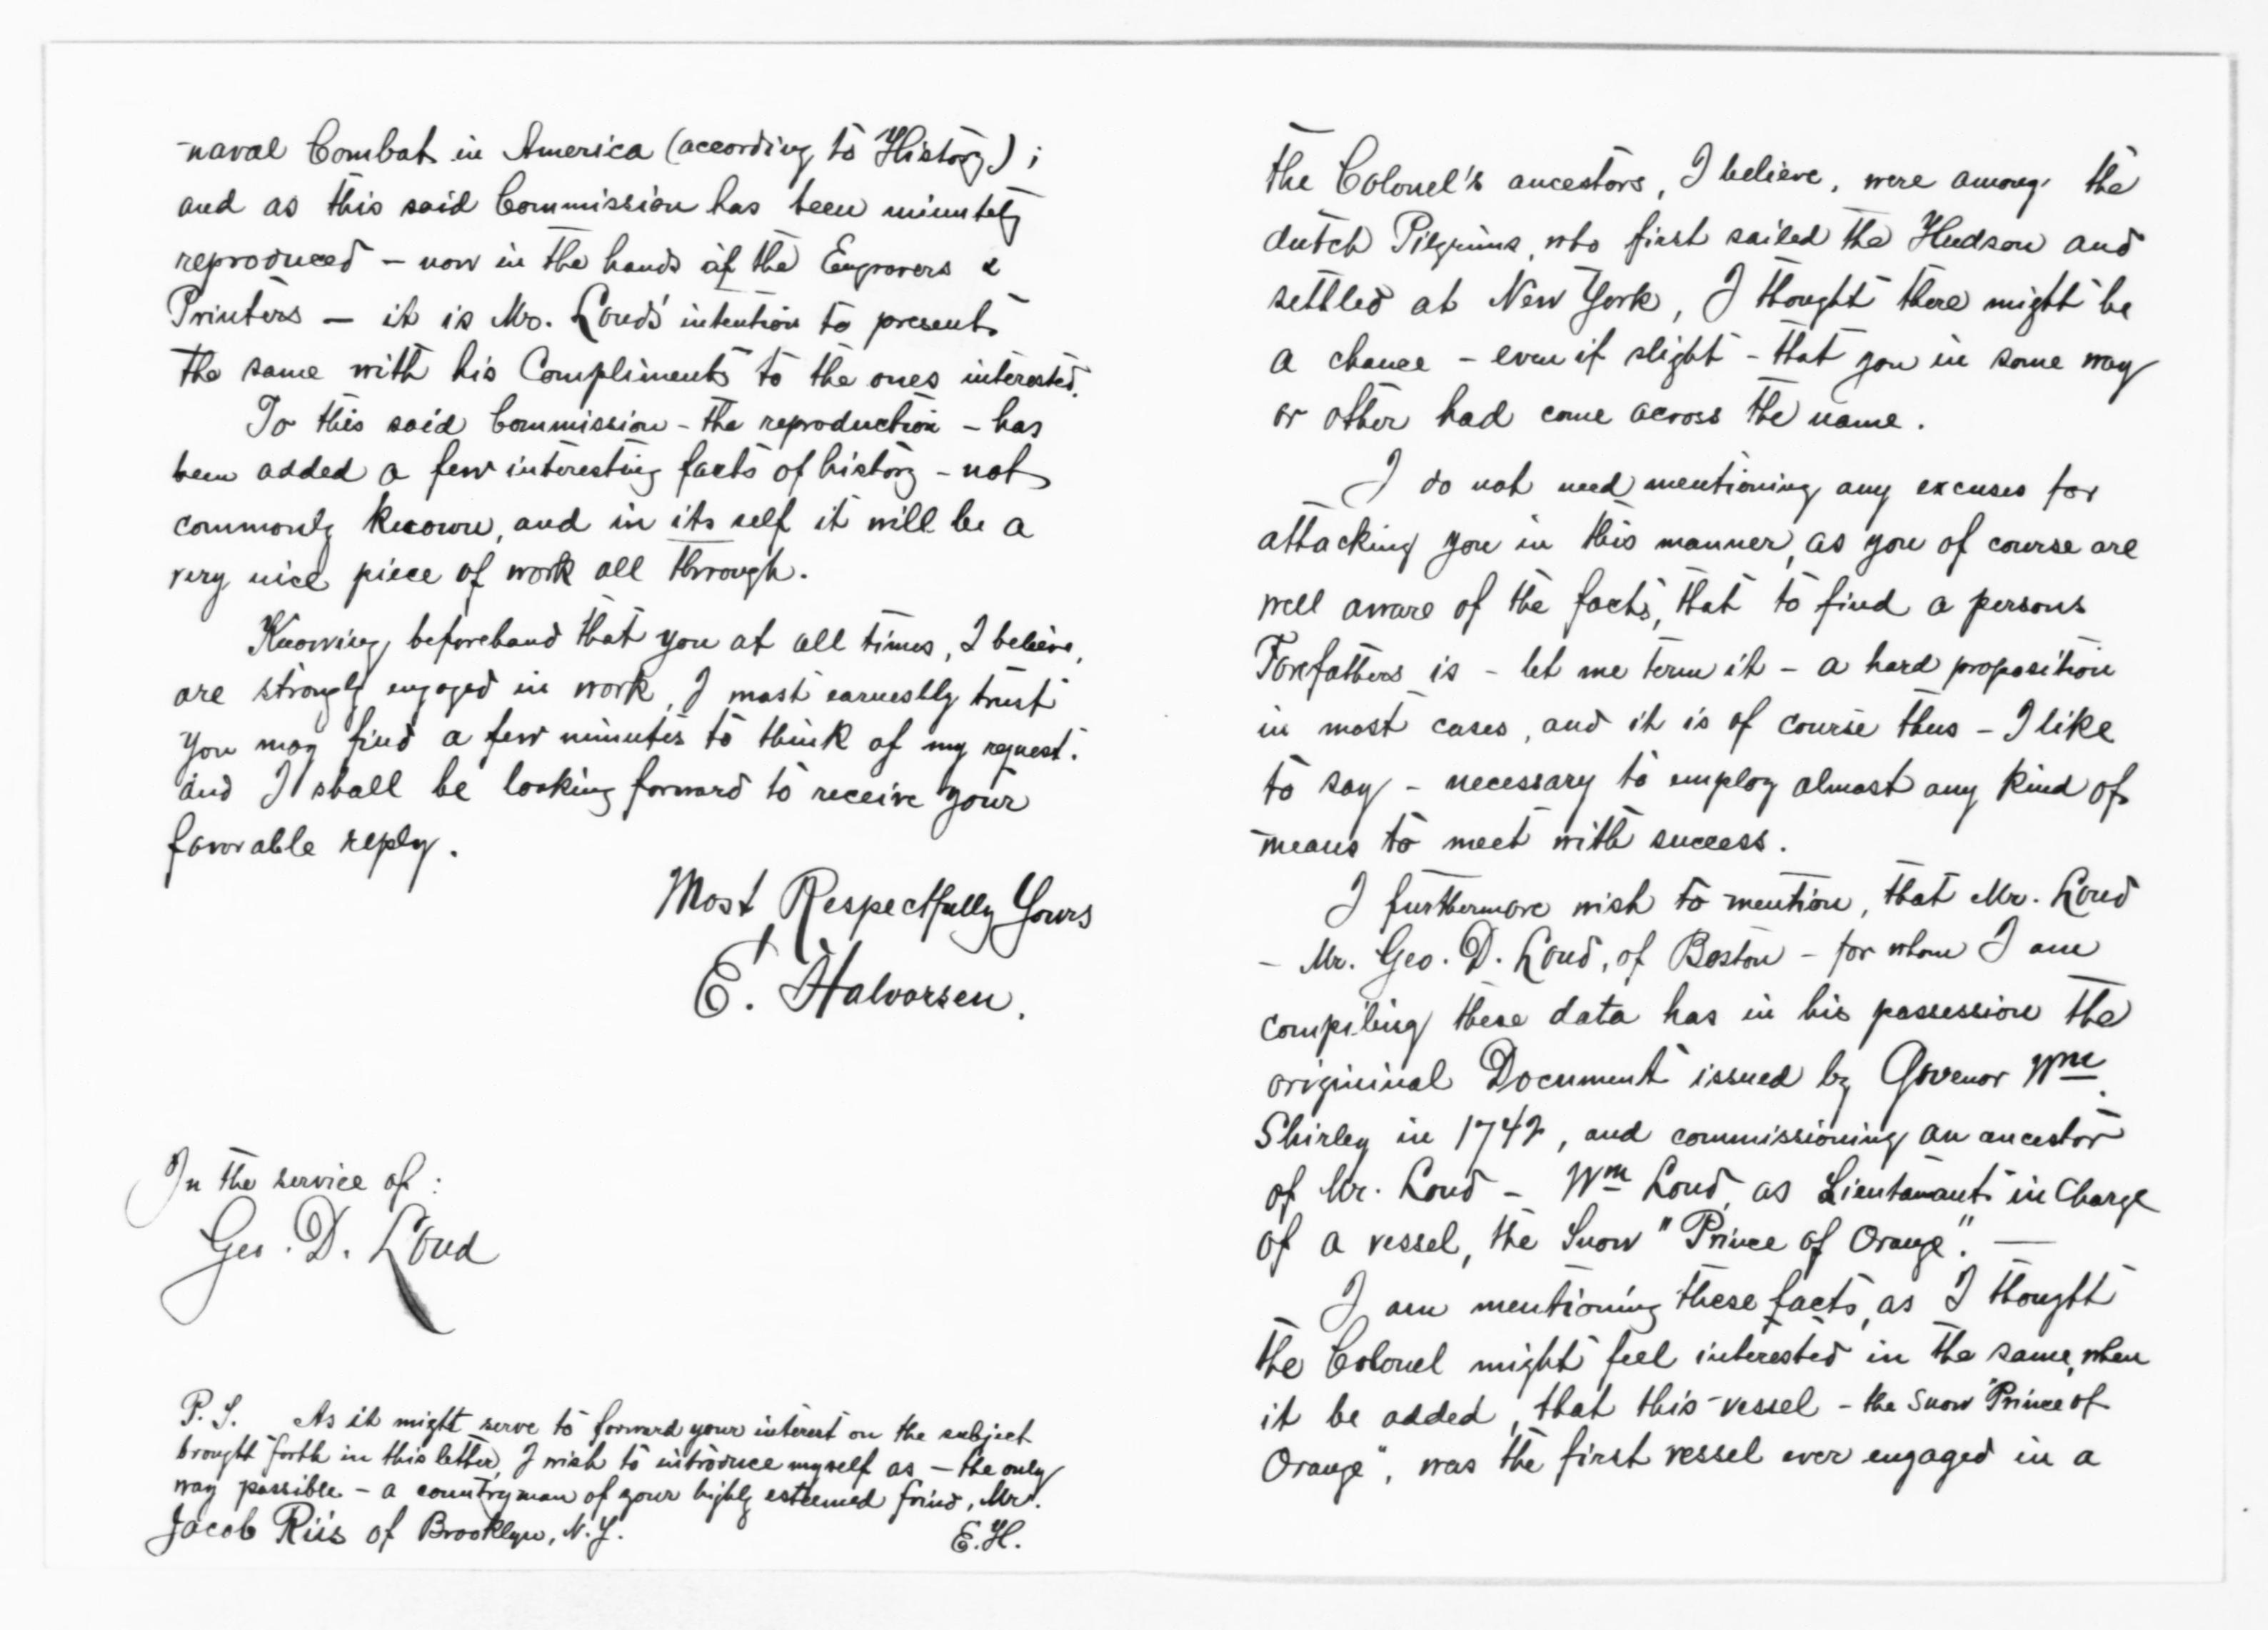 the Colonel's ancestors, I believe, were among the
dutch Pilgrims, who first sailed the Hudson and
settled at New York, I thought there might be
a chance - even if slight - that you in some way
or other had come across the name.
I do not need mentioning any excuses for
attacking you in this manner, as you of course are
well aware of the facts, that to find a persons
Forefathers is - let me term it - a hard proposition
in most cases, and it is of course thus - I like
to say - necessary to employ almost any kind of
means to meet with success.
I furthermore wish to mention, that Mr. Loud
- Mr. Geo. D. Loud, of Boston - for whom I am
compiling these data has in his possession the
origininal Document issued by Govenor Wm.
Shirley in 1742, and commissioning an ancestor
of Mr. Loud - Wm Loud, as Lieutanant in Charge
of a vessel, the Snow "Prince of Orange". —
I am mentioning these facts, as I thought
the Colonel might feel interested in the same, when
it be added, that this vessel - the Snow "Prince of
Orange", was the first vessel ever engaged in a
naval Combat in America (according to History);
and as this said Commission has been minutely
reproduced - now in the hands of the Engravers &
Printers - it is Mr. Loud's intention to present
the same with his Compliments to the ones interested.
To this said Commission - the reproduction - has
been added a few interesting facts of history - not
commonly known, and in its self it will be a
very nice piece of work all through.
Knowing beforehand that you at all times, I believe,
are strongly engaged in work, I most earnestly trust
you may find a few minutes to think of my request.
and I shall be looking forward to receive your
favorable reply.
Most Respectfully Yours
E. Halvorsen.
In the service of:
Geo. D. Loud
P.S. As it might serve to forward your interest on the subject
brought forth in this letter, I wish to introduce myself as - the only
way possible - a countryman of your highly esteemed frind, Mr.
Jacob Riis of Brooklyn, N.Y.
E.H.